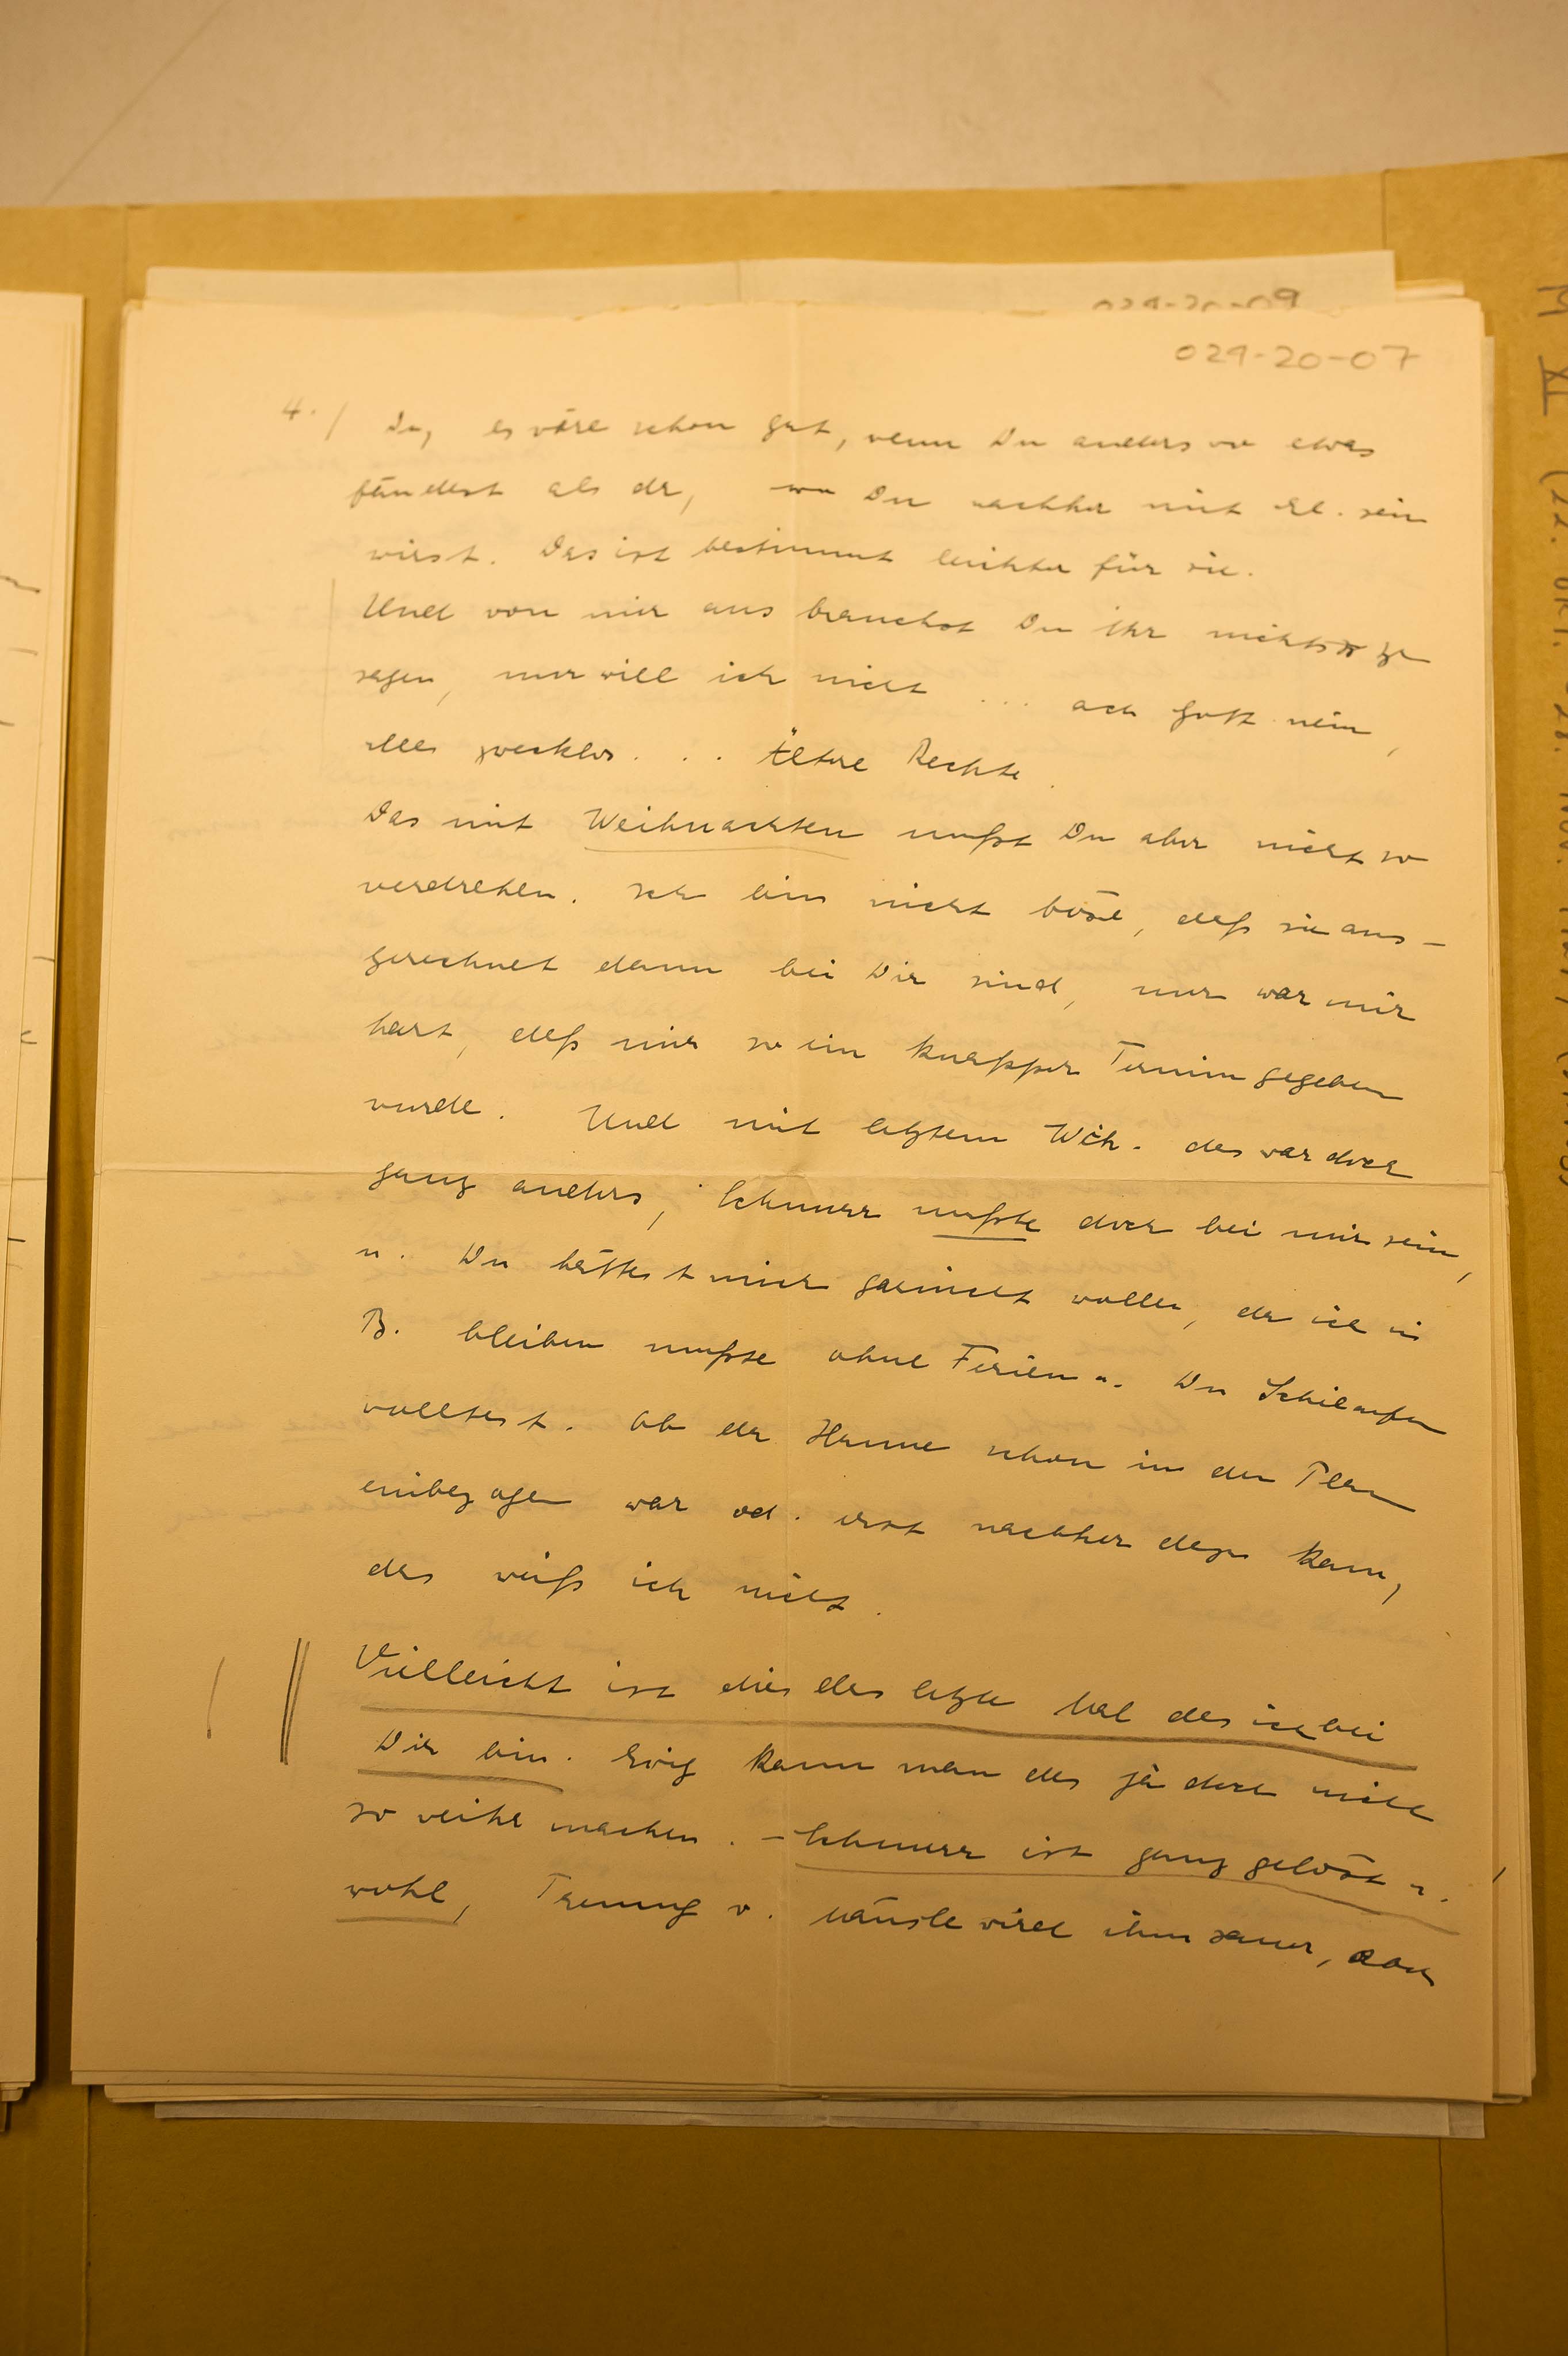 029-20-09
029-20-07
4./ Du, es wäre schon gut, wenn Du anderswo etwas
fändest als da, wo Du nachher mit El. sein
wirst. Das ist bestimmt leichter für sie.
Und von mir aus brauchst Du ihr nichts zu
sagen, nur will ich nicht ... ach Gott nein,
alles zwecklos... Ältere Rechte.
Das mit Weihnachten mußt Du aber nicht so
verdrehen. Ich bin nicht böse, daß sie aus-
gerechnet dann bei Dir sind, nur war mir
hart, daß mir so ein knapper Termin gegeben
wurde. Und mit letztem Weih. das war doch
ganz anders, Schnurr mußte doch bei mir sein,
u. Du hättest mich garnicht wollen, da ich in
B. bleiben mußte ohne Ferien u. Du Schilaufen
wolltest. Ob da Hanne schon in den Plan
einbezogen war od. erst nachher dazu kam,
das weiß ich nicht.
Vielleicht ist dies das letzte Mal das ich bei
Dir bin. Ewig kann man das ja doch nicht
so machen. – Schnurr ist ganz gelöst u.
wohl, Trennung v. Mäusle wird ihm sauer, doch